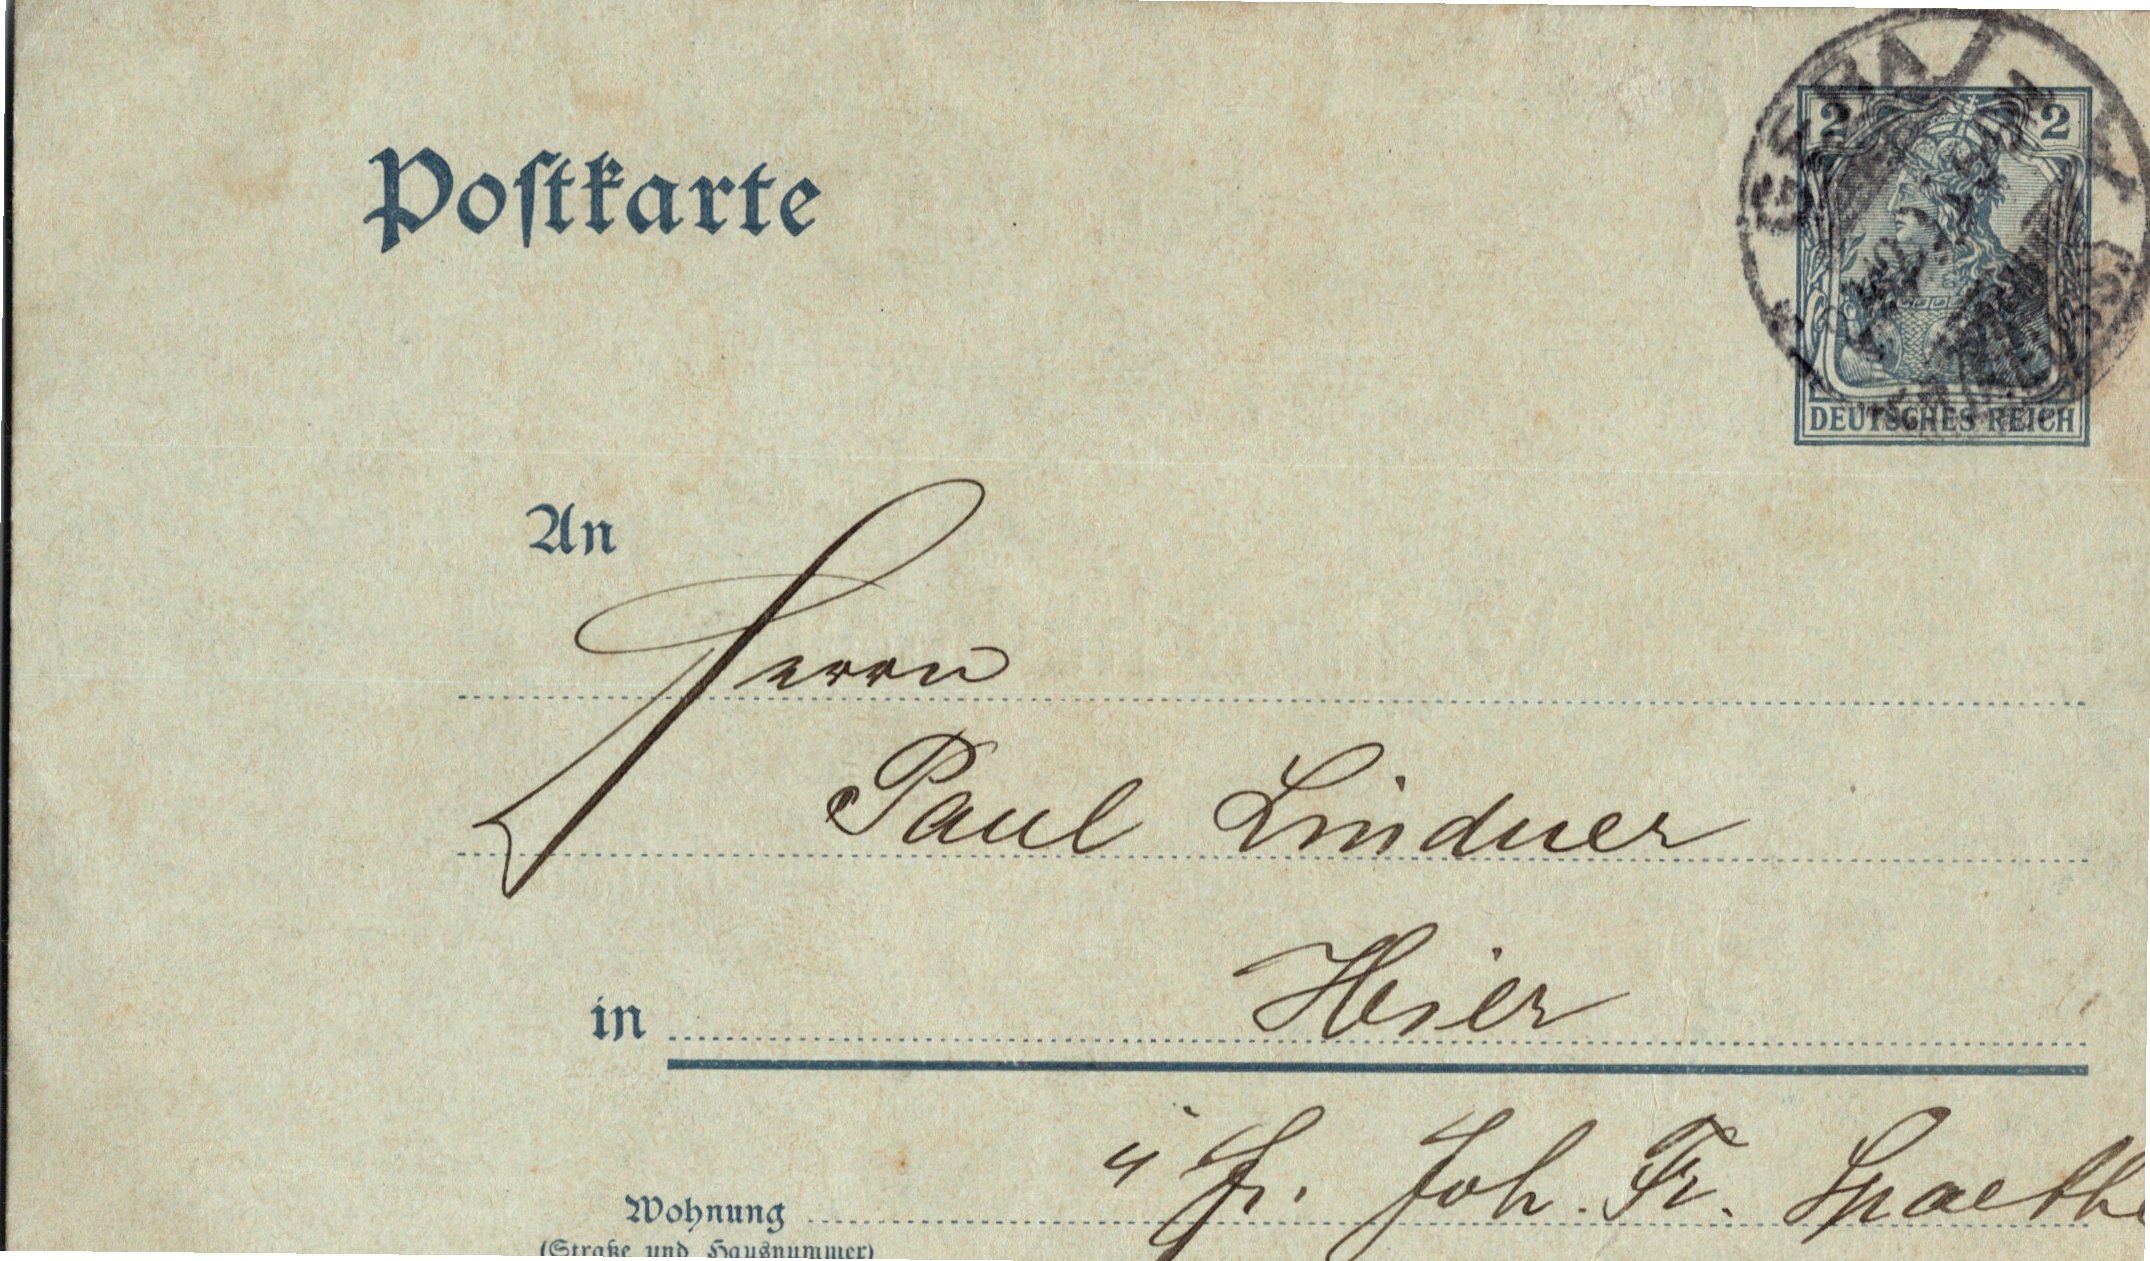 Postkarte
2 2
GERA
DEUTSCHES REICH
An
Herrn
Paul Lindner
in Hier
Fr. Joh. Fr. Spaethe
Wohnung
(Straße und Hausnummer)